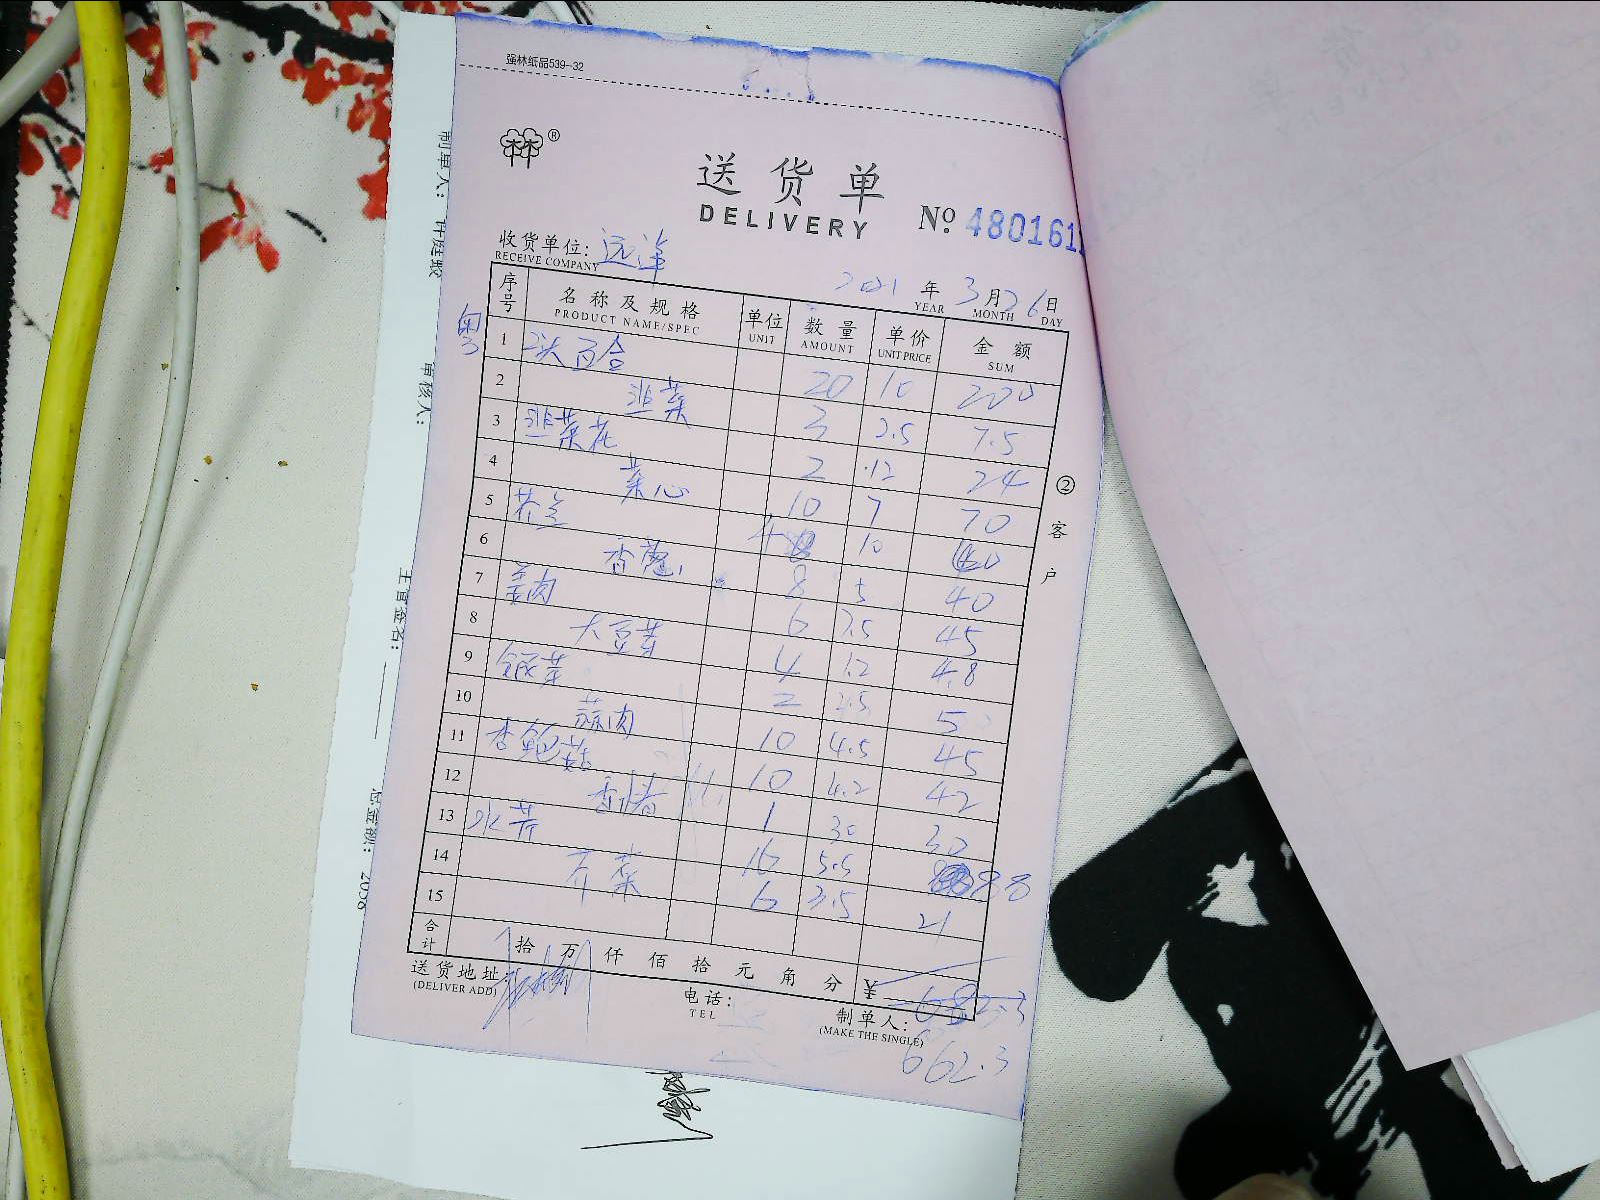 强林纸品539-32
®
送货单
DELIVERY
№ 480161
收货单位: 远洋
RECEIVE COMPANY
2021 年 3 月 26 日
YEAR MONTH DAY
序号 名称及规格 单位 数量 单价 金额
PRODUCT NAME/SPEC UNIT AMOUNT UNIT PRICE SUM
1 百合 20 10 200
2 韭菜 3 2.5 7.5
3 韭菜花 2 12 24
4 菜心 10 7 70
5 芥兰 4 10 40
6 香葱 8 5 40
7 姜肉 6 7.5 45
8 大豆芽 4 1.2 4.8
9 银芽 2 2.5 5
10 蒜肉 10 4.5 45
11 杏鲍菇 10 4.2 42
12 1 30 30
13 水芹 16 5.5 88
14 芥菜 6 3.5 21
15
合计 拾 万 仟 佰 拾 元 角 分 ¥ 682.3
送货地址:
(DELIVER ADD)
电话:
TEL
制单人:
(MAKE THE SINGLE)
662.3
② 客户
制单人:
审核人:
主管签名:
总金额: 2058